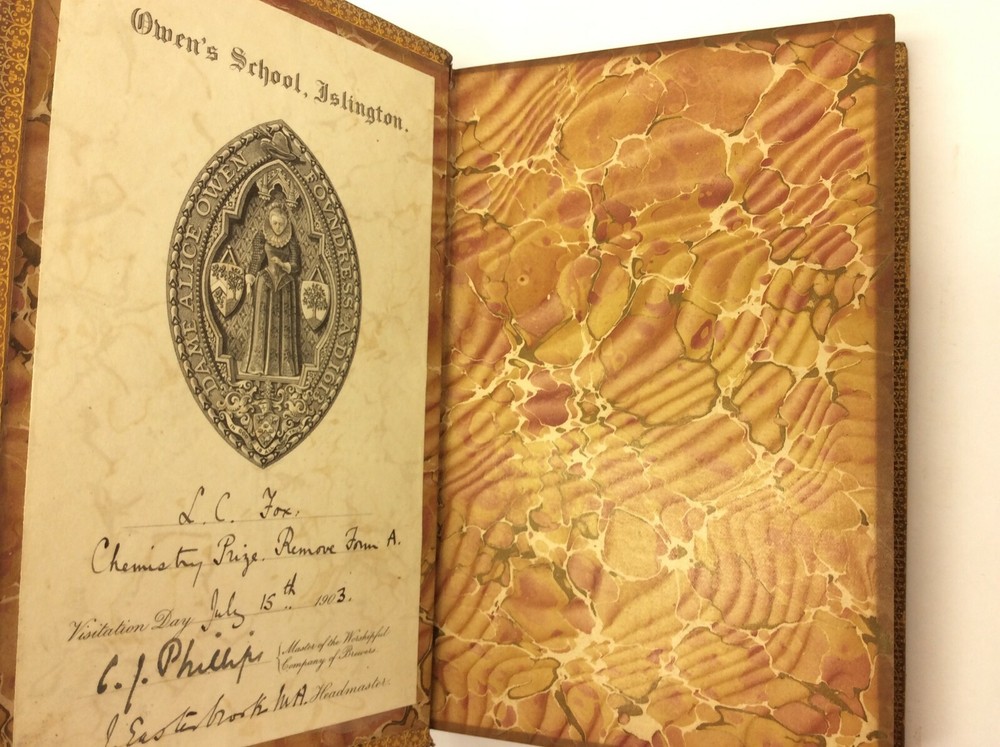 Owen's School, Islington.
DAME ALICE OWEN FOVNDRESS A.D. 1613
L. C. Fox,
Chemistry Prize. Remove Form A.
Visitation Day July 15th 1903.
C. J. Phillips { Master of the Worshipful
Company of Brewers.
J. Easterbrook M.A. Headmaster.